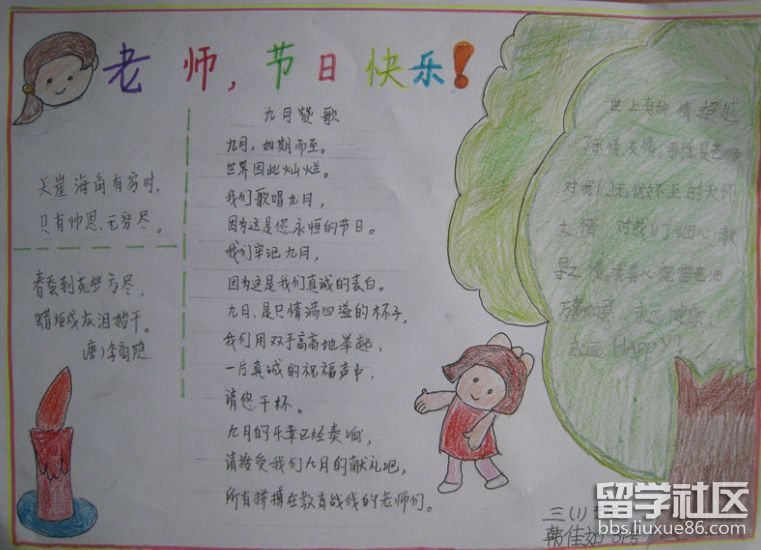 老师,节日快乐!
天崖海角有穷时,
只有师恩无穷尽。
春蚕到死丝方尽,
蜡炬成灰泪始干。
唐)李商隐
九月赞歌
九月,如期而至。
世界因此灿烂。
我们歌唱九月,
因为这是您永恒的节日。
我们牢记九月,
因为这是我们真诚的表白。
九月,是只情满四溢的杯子,
我们用双手高高地举起,
一片真诚的祝福声中,
请您干杯。
九月的乐章已经奏响,
请接受我们九月的献礼吧,
所有拼搏在教育战线的老师们。
世上有种情超越
了亲情、友情、
对我们无微不至的关怀
之情,对我们
永远
HAPPY
三(1)
韩佳如
留学社区
bbs.liuxue86.com